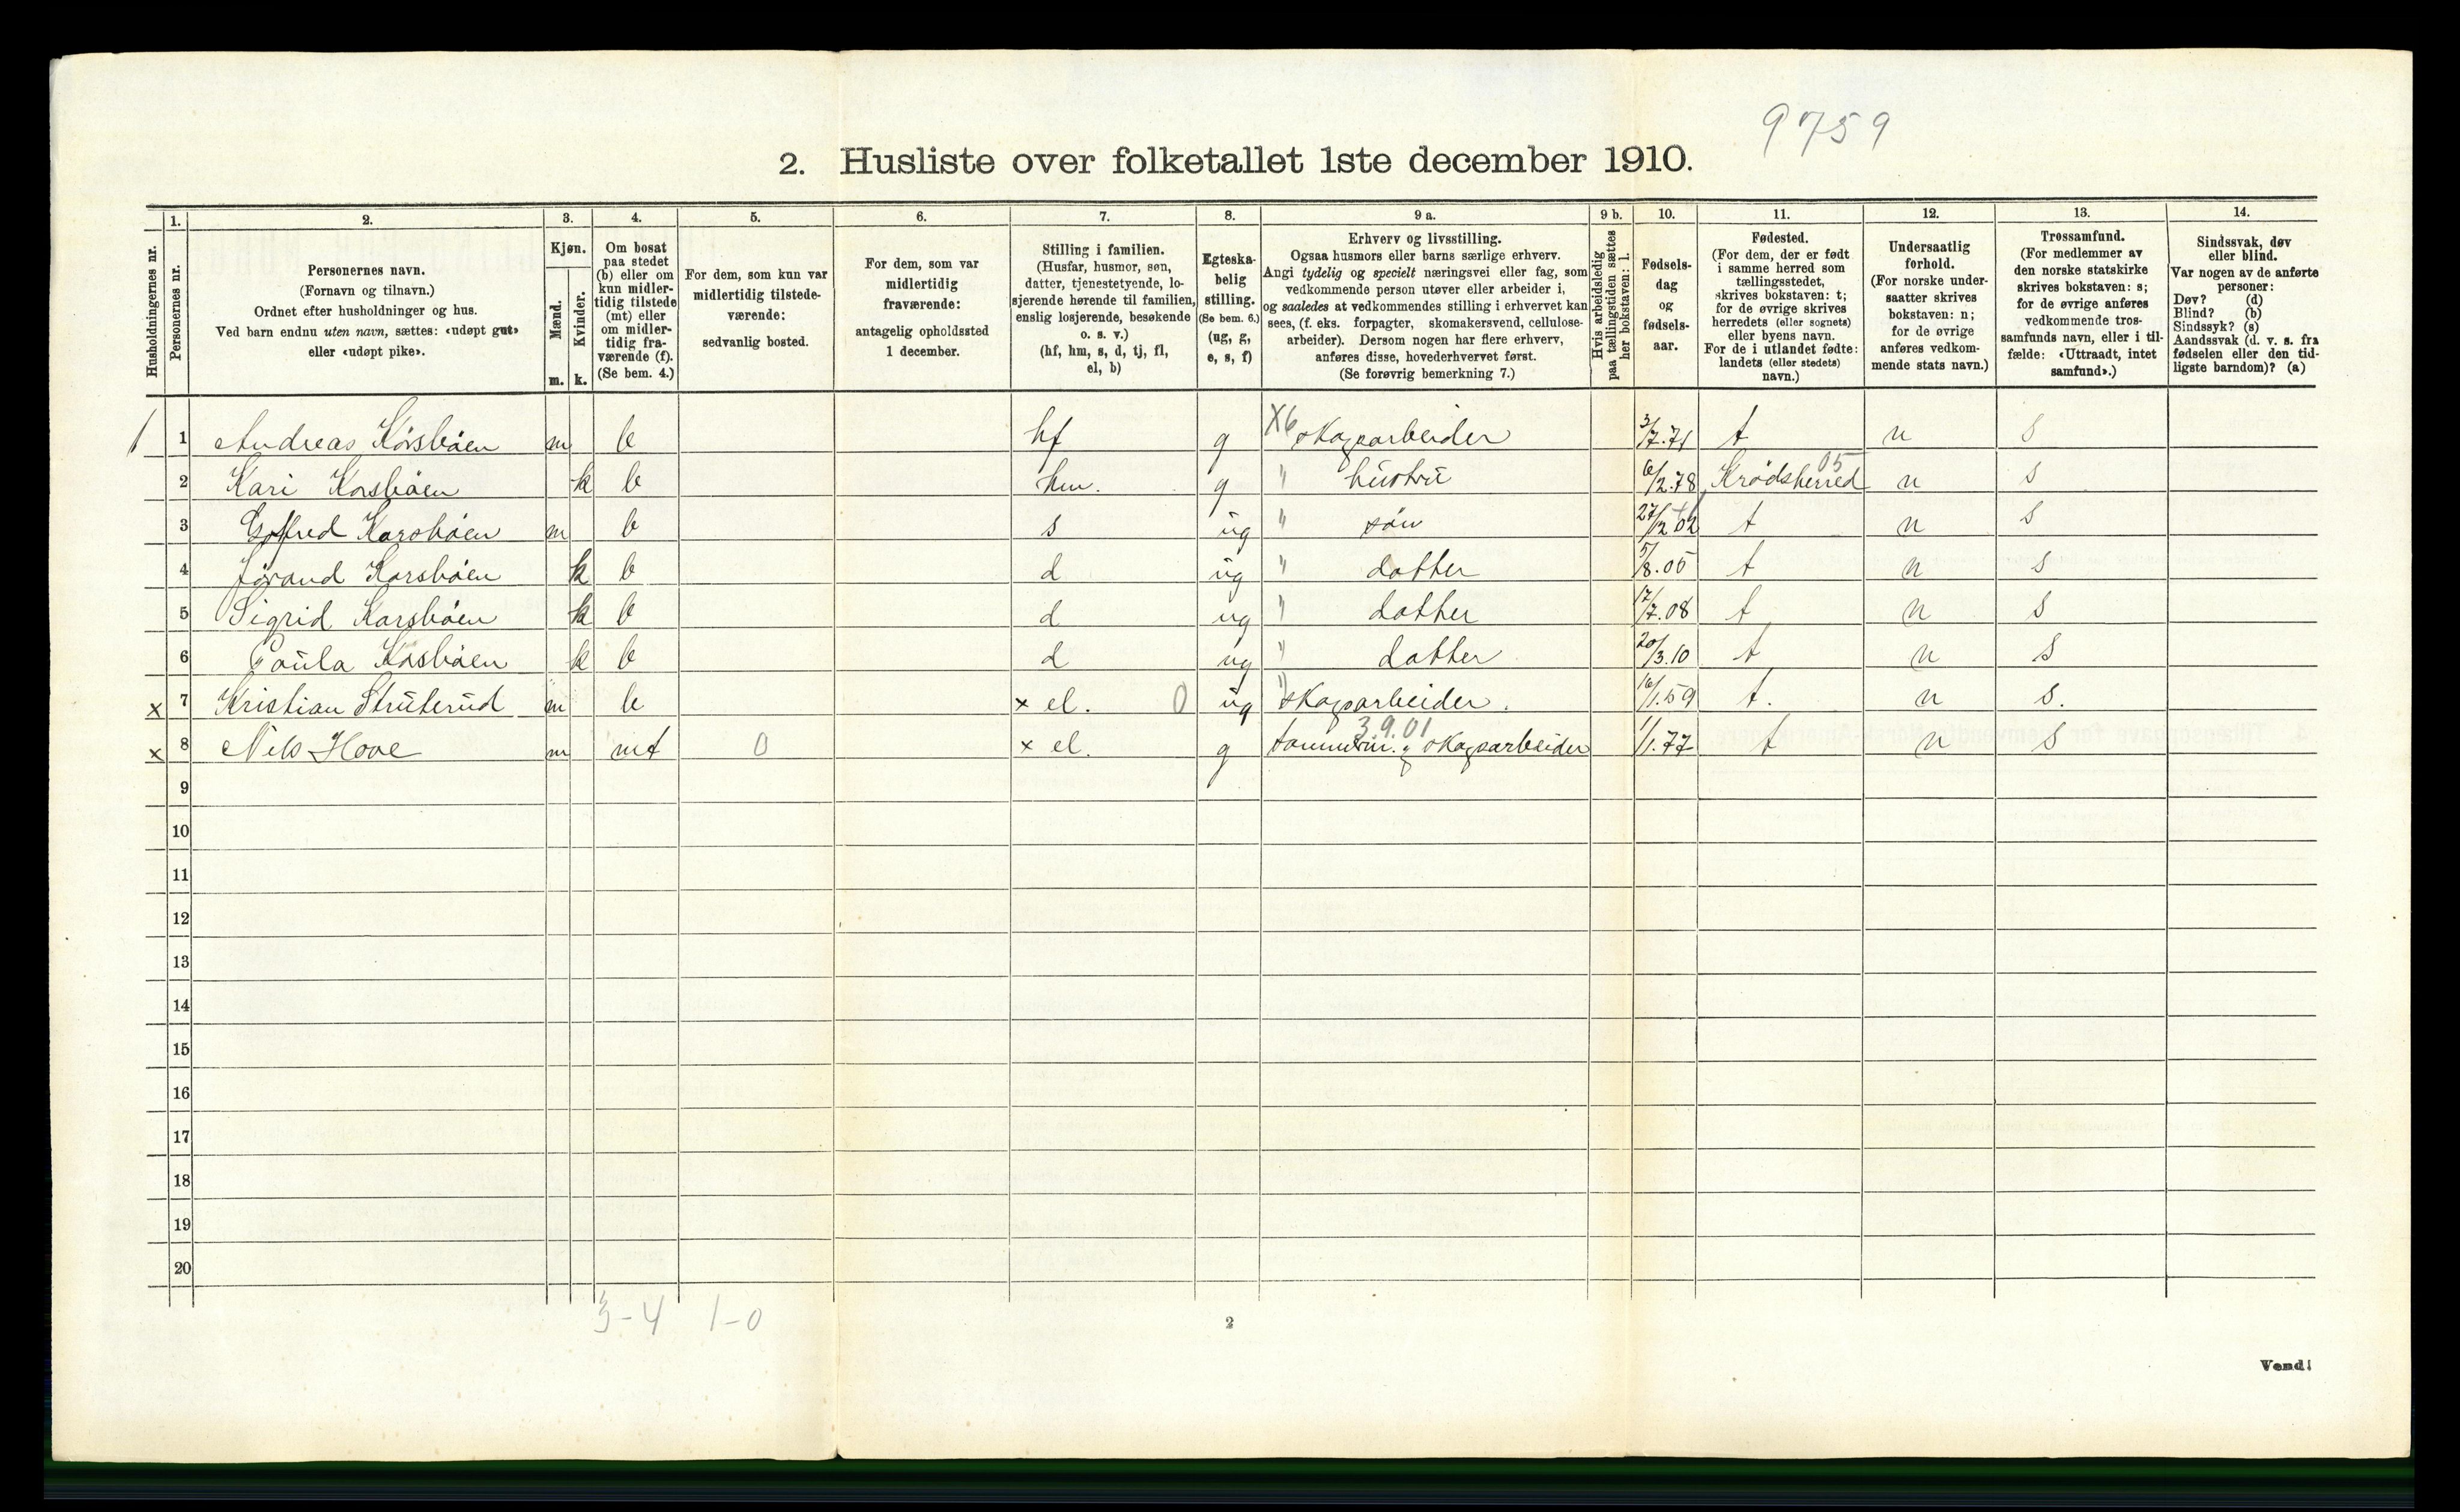 9759
2. Husliste over folketallet 1ste december 1910.
1. 2. 3. 4. 5. 6. 7. 8. 9 a. 9 b. 10. 11. 12. 13. 14.
Husholdningernes nr.
Personernes nr.
Personernes navn.
(Fornavn og tilnavn.)
Ordnet efter husholdninger og hus.
Ved barn endnu uten navn, sættes: «udøpt gut»
eller «udøpt pike».
Kjøn.
Mænd.
Kvinder.
m. k.
Om bosat
paa stedet
(b) eller om
kun midler-
tidig tilstede
(mt) eller
om midler-
tidig fra-
værende (f).
(Se bem. 4.)
For dem, som kun var
midlertidig tilstede-
værende:
sedvanlig bosted.
For dem, som var
midlertidig
fraværende:
antagelig opholdssted
1 december.
Stilling i familien.
(Husfar, husmor, søn,
datter, tjenestetyende, lo-
sjerende hørende til familien,
enslig losjerende, besøkende
o. s. v.)
(hf, hm, s, d, tj, fl,
el, b)
Egteska-
belig
stilling.
(Se bem. 6.)
(ug, g,
e, s, f)
Erhverv og livsstilling.
Ogsaa husmors eller barns særlige erhverv.
Angi tydelig og specielt næringsvei eller fag, som
vedkommende person utøver eller arbeider i,
og saaledes at vedkommendes stilling i erhvervet kan
sees, (f. eks. forpagter, skomakersvend, cellulose-
arbeider). Dersom nogen har flere erhverv,
anføres disse, hovederhvervet først.
(Se forøvrig bemerkning 7.)
Hvis arbeidsledig
paa tællingstiden sættes
her bokstaven: l.
Fødsels-
dag
og
fødsels-
aar.
Fødested.
(For dem, der er født
i samme herred som
tællingsstedet,
skrives bokstaven: t;
for de øvrige skrives
herredets (eller sognets)
eller byens navn.
For de i utlandet fødte:
landets (eller stedets)
navn.)
Undersaatlig
forhold.
(For norske under-
saatter skrives
bokstaven: n;
for de øvrige
anføres vedkom-
mende stats navn.)
Trossamfund.
(For medlemmer av
den norske statskirke
skrives bokstaven: s;
for de øvrige anføres
vedkommende tros-
samfunds navn, eller i til-
fælde: «Uttraadt, intet
samfund».)
Sindssvak, døv
eller blind.
Var nogen av de anførte
personer:
Døv? (d)
Blind? (b)
Sindssyk? (s)
Aandssvak (d. v. s. fra
fødselen eller den tid-
ligste barndom)? (a)
1 1 Andreas Korsbøen m b hf g X6 skogsarbeider 3/7.71 t n s
2 Kari Korsbøen k b hm. g " hustru 6/2.78 Krødsherred 05 n s
3 Korsbøen m b s ug " søn 27/12 02 t n s
4 Jørand Korsbøen k b d ug " datter 5/8.05 t n s
5 Sigrid Korsbøen k b d ug " datter 17/7.08 t n s
6 Paula Korsbøen k b d ug " datter 20/3.10 t n s
x 7 Kristian Struterud m b x el. 0 ug " skogsarbeider. 16/1.59 t. n s.
x 8 Nils Hove m mt 0 x el. g 3.9.01 tømmerm. og skogsarbeider 1/1.77 t n s
9
10
11
12
13
14
15
16
17
18
19
20
3-4 1-0
2
Vend!